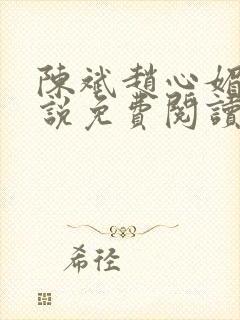 陳斌趙心媚
說免費閱讀
希径